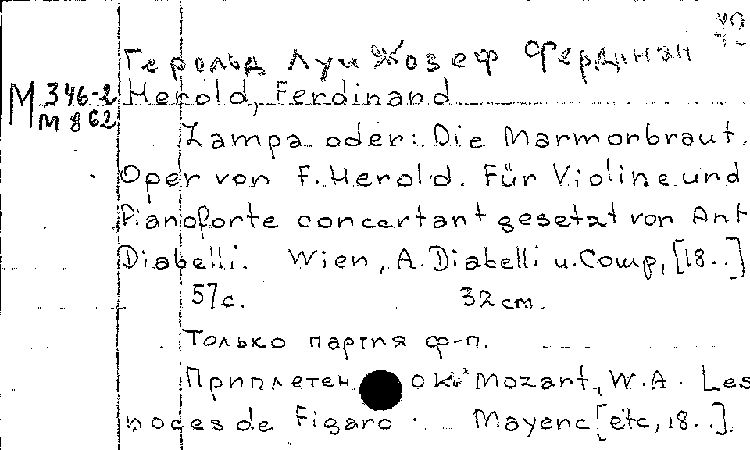 Герольд Луи Жозеф Фердинан
М 346-2 Herold, Ferdinand
М 862
Zampa oder: Die Marmorbraut.
Oper von F. Herold. Für Violine und
Pianoforte concertant gesetzt von Ant
Diabelli. Wien, A. Diabelli u. Comp, [18..]
57 с. 32 см.
Только партия ф-п.
Приплетен к: Mozart, W.A. Les
noces de Figaro. Mayenc [etc, 18..].